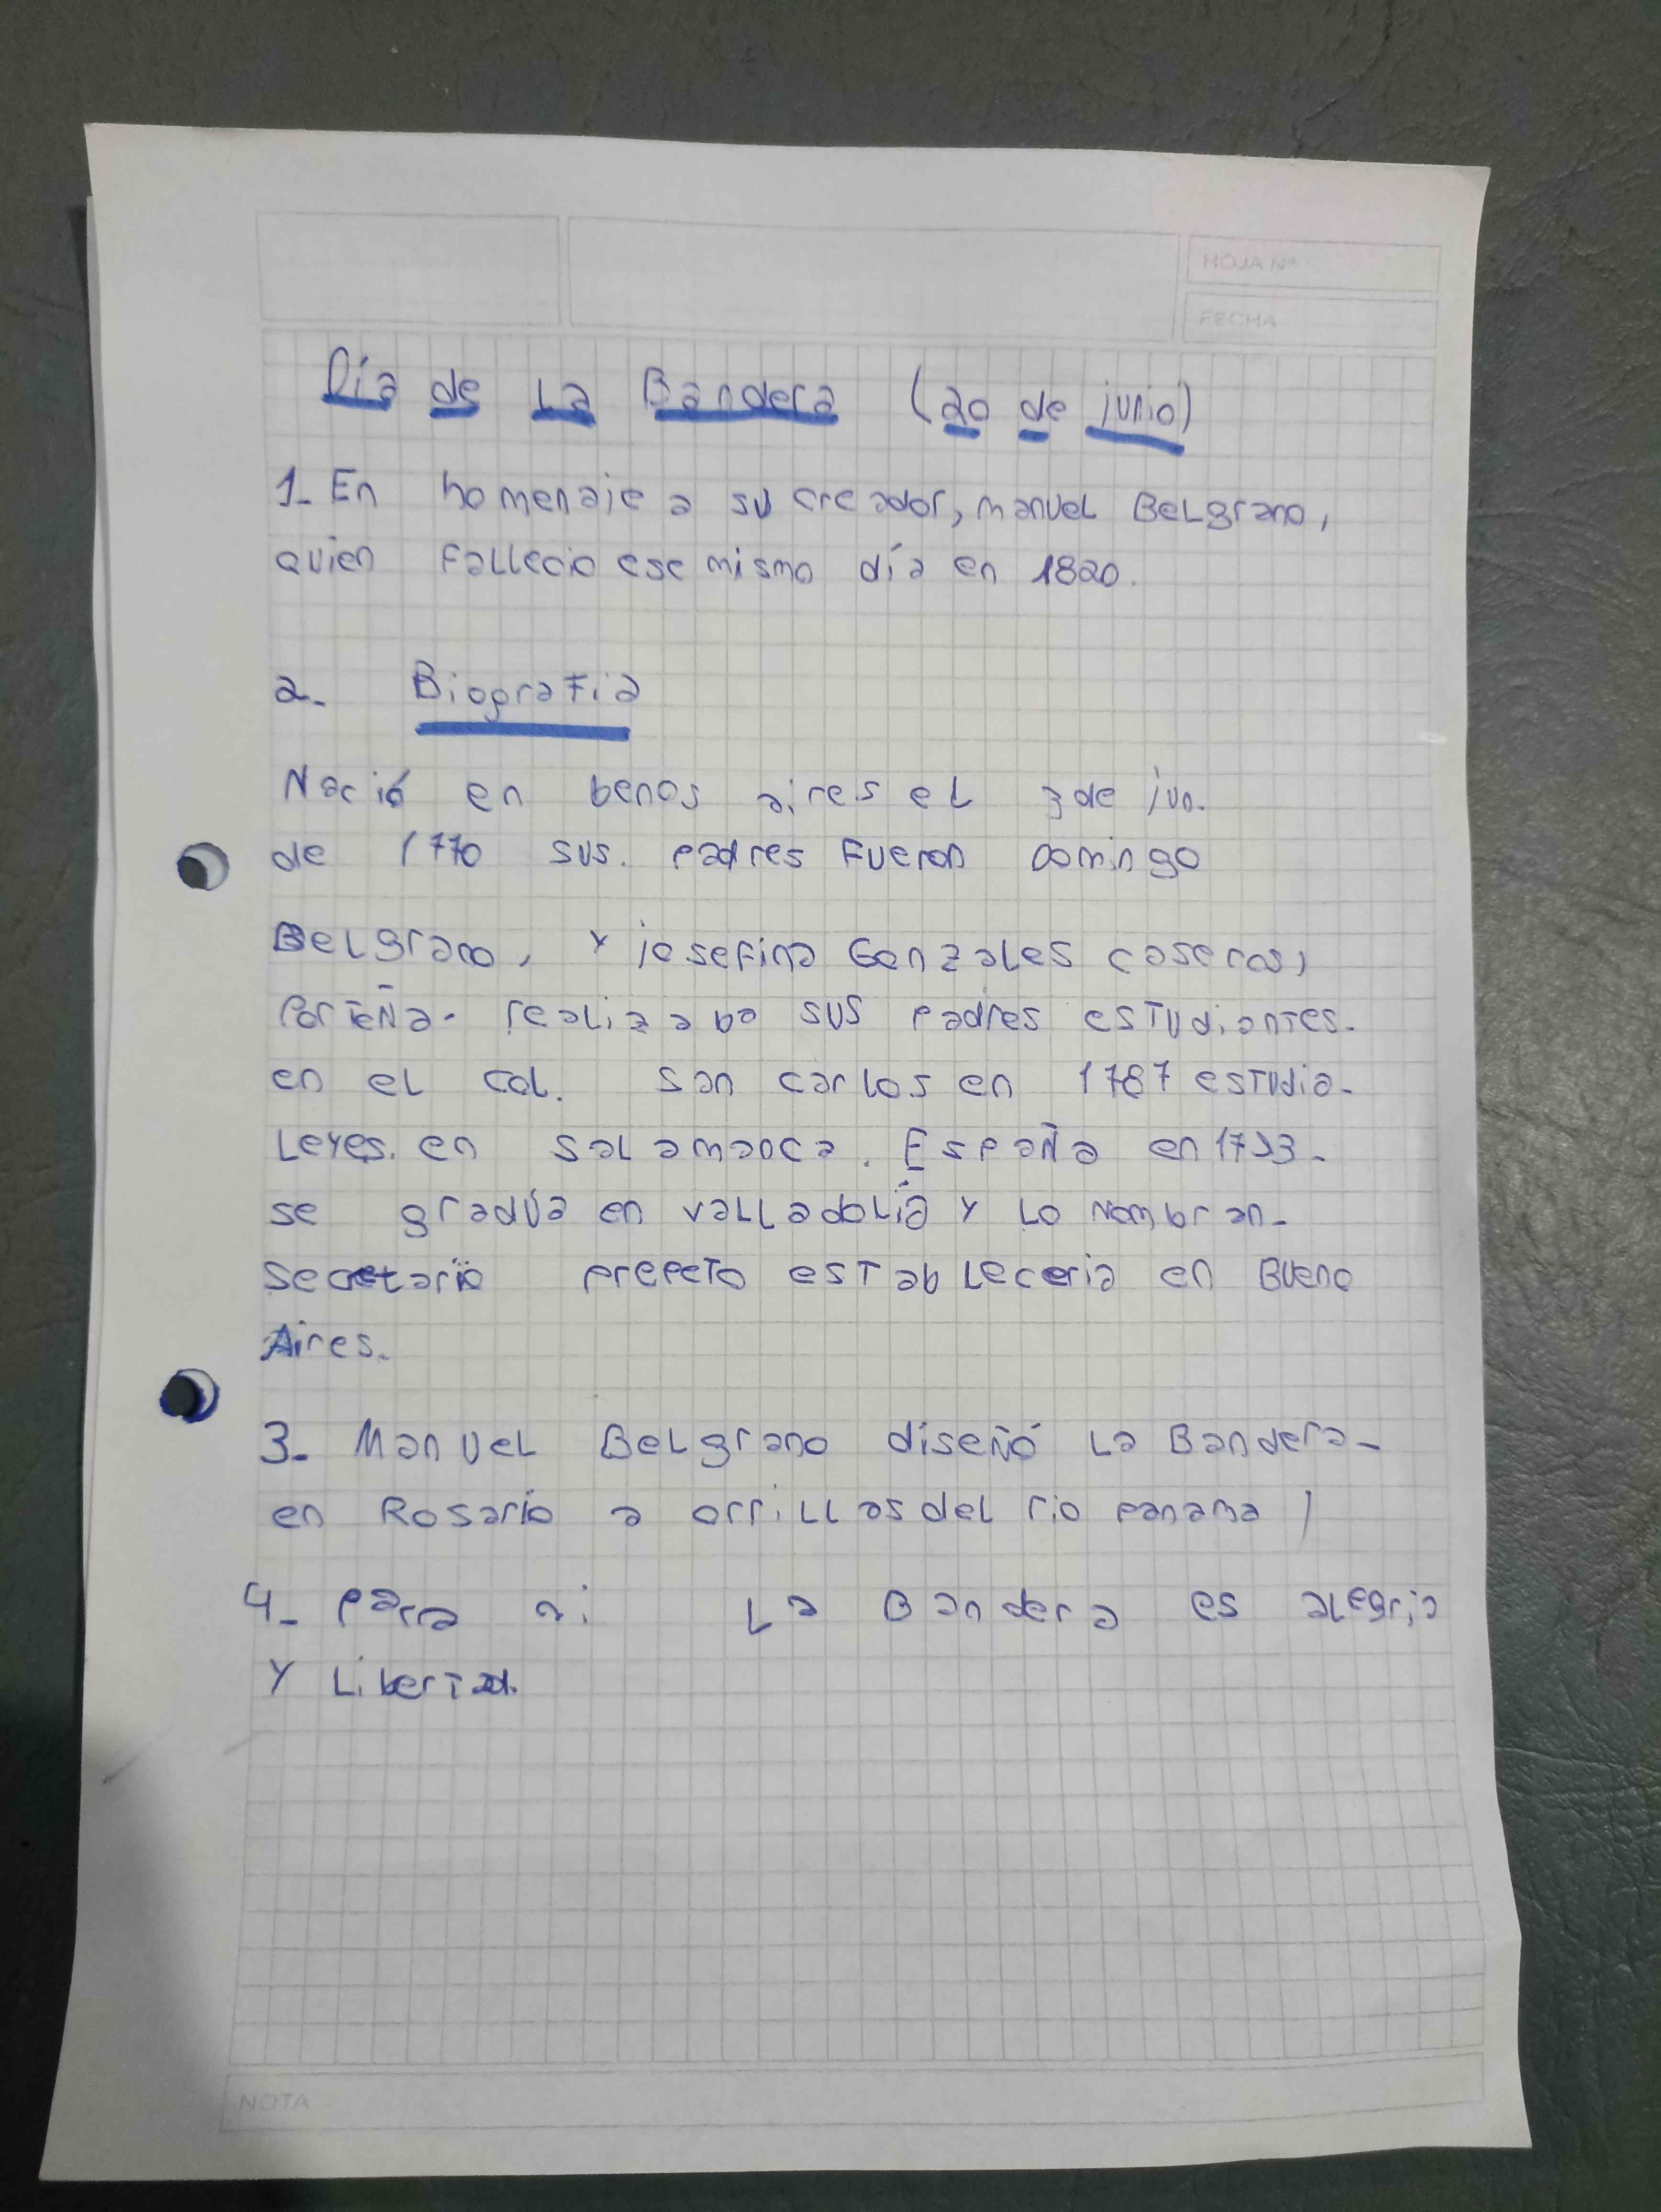 HOJA Nº
FECHA
Día de La Bandera (20 de junio)
1- En homenaje a su creador, manuel BeLgrano,
quien falleció ese mismo día en 1820.
2- Biografia
Nació en benos aires el 3 de jun.
de 1770 sus. padres fueron Domingo
BeLgrano, y josefina Gonzales caseros,
Porteña. realizaba sus padres estudiantes.
en el col. san carlos en 1787 estudia-
Leyes. en saLamanca. España en 1793-
se gradúa en valladolid y Lo Nombran-
secretario prepeto estableceria en Bueno
Aires.
3- Manuel BeLgrano diseñó La Bandera-
en Rosario a orrillas del rio panama
4- Para mi La Bandera es alegria
y Libertad.
NOTA